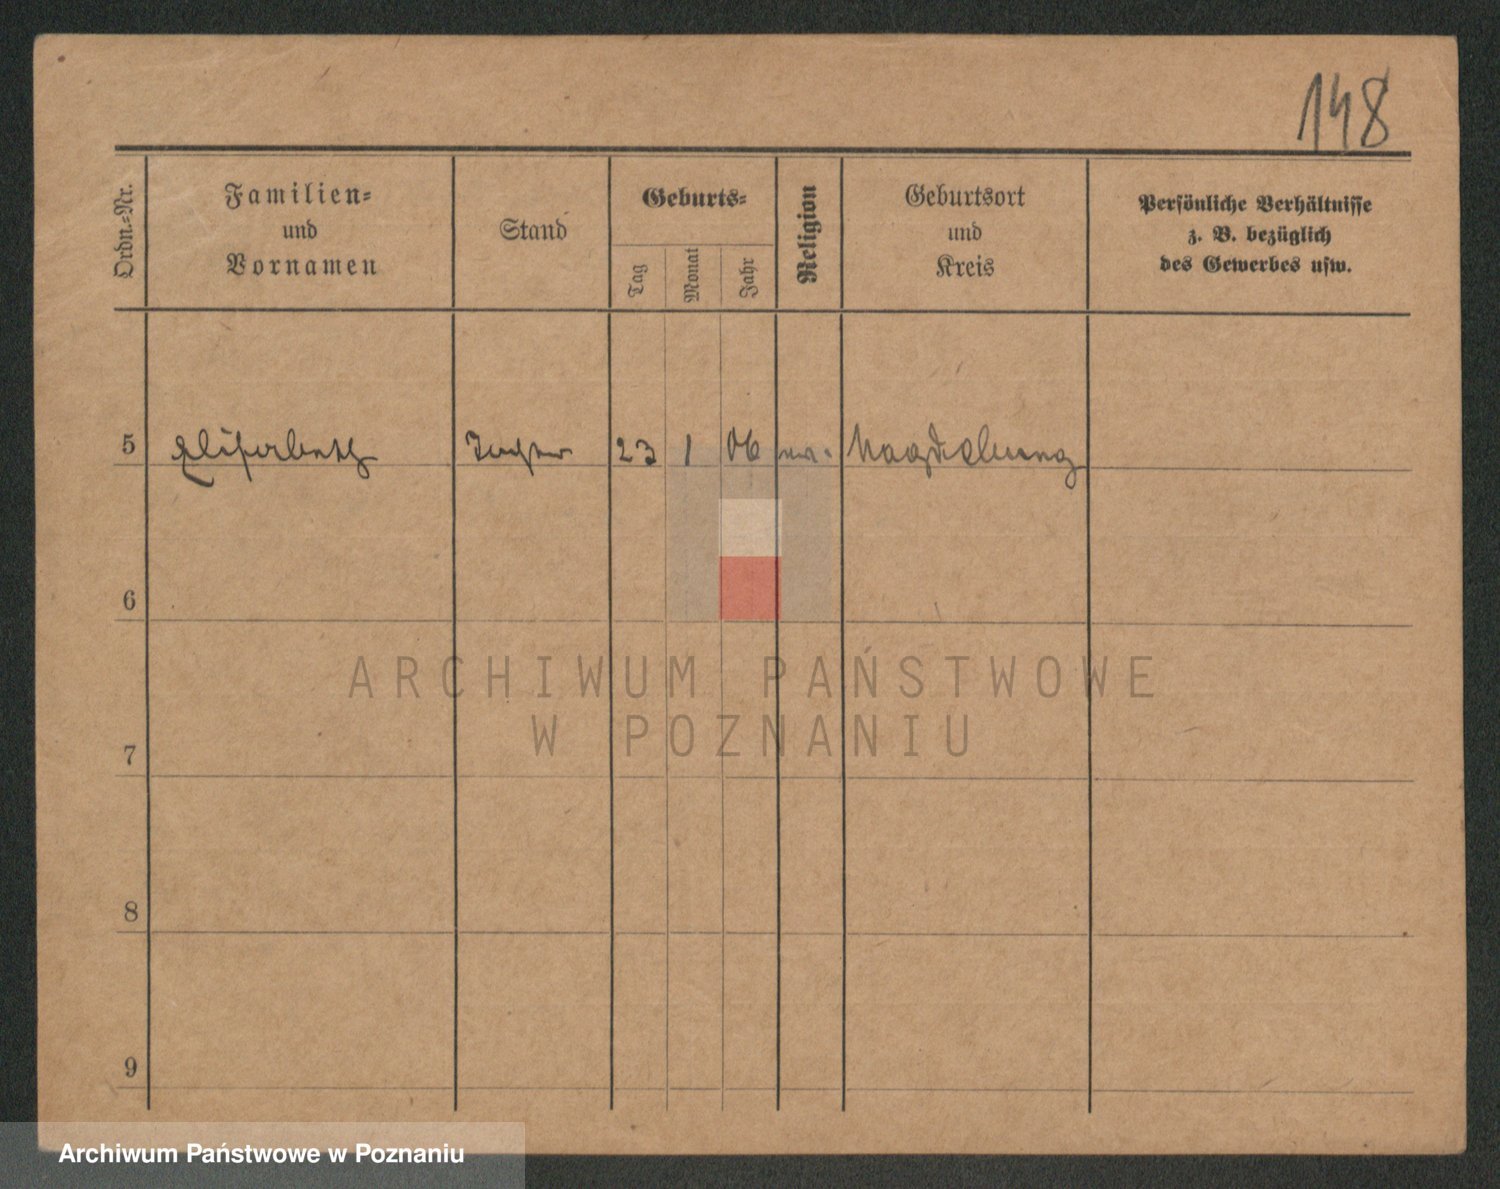 148
Ordn.-Nr.
Familien-
und
Vornamen
Stand
Geburts-
Tag
Monat
Jahr
Religion
Geburtsort
und
Kreis
Persönliche Verhältnisse
z. B. bezüglich
des Gewerbes usw.
5 Elisabeth Tochter 23 1 06 Magdeburg
6
7
8
9
ARCHIWUM PAŃSTWOWE
W POZNANIU
Archiwum Państwowe w Poznaniu